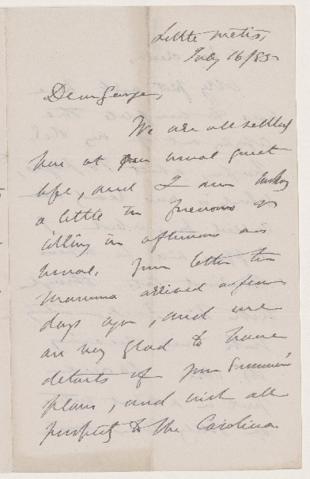 Little Metis
July 16/83
Dear George,
We are all settled
here at our usual quiet
life, and I am working
a little in forenoons &
idling in afternoons as
usual. Your letter to
Mamma arrived a few
days ago, and we
are very glad to have
details of your Summer
plans, and wish all
prosperity to the Carolina